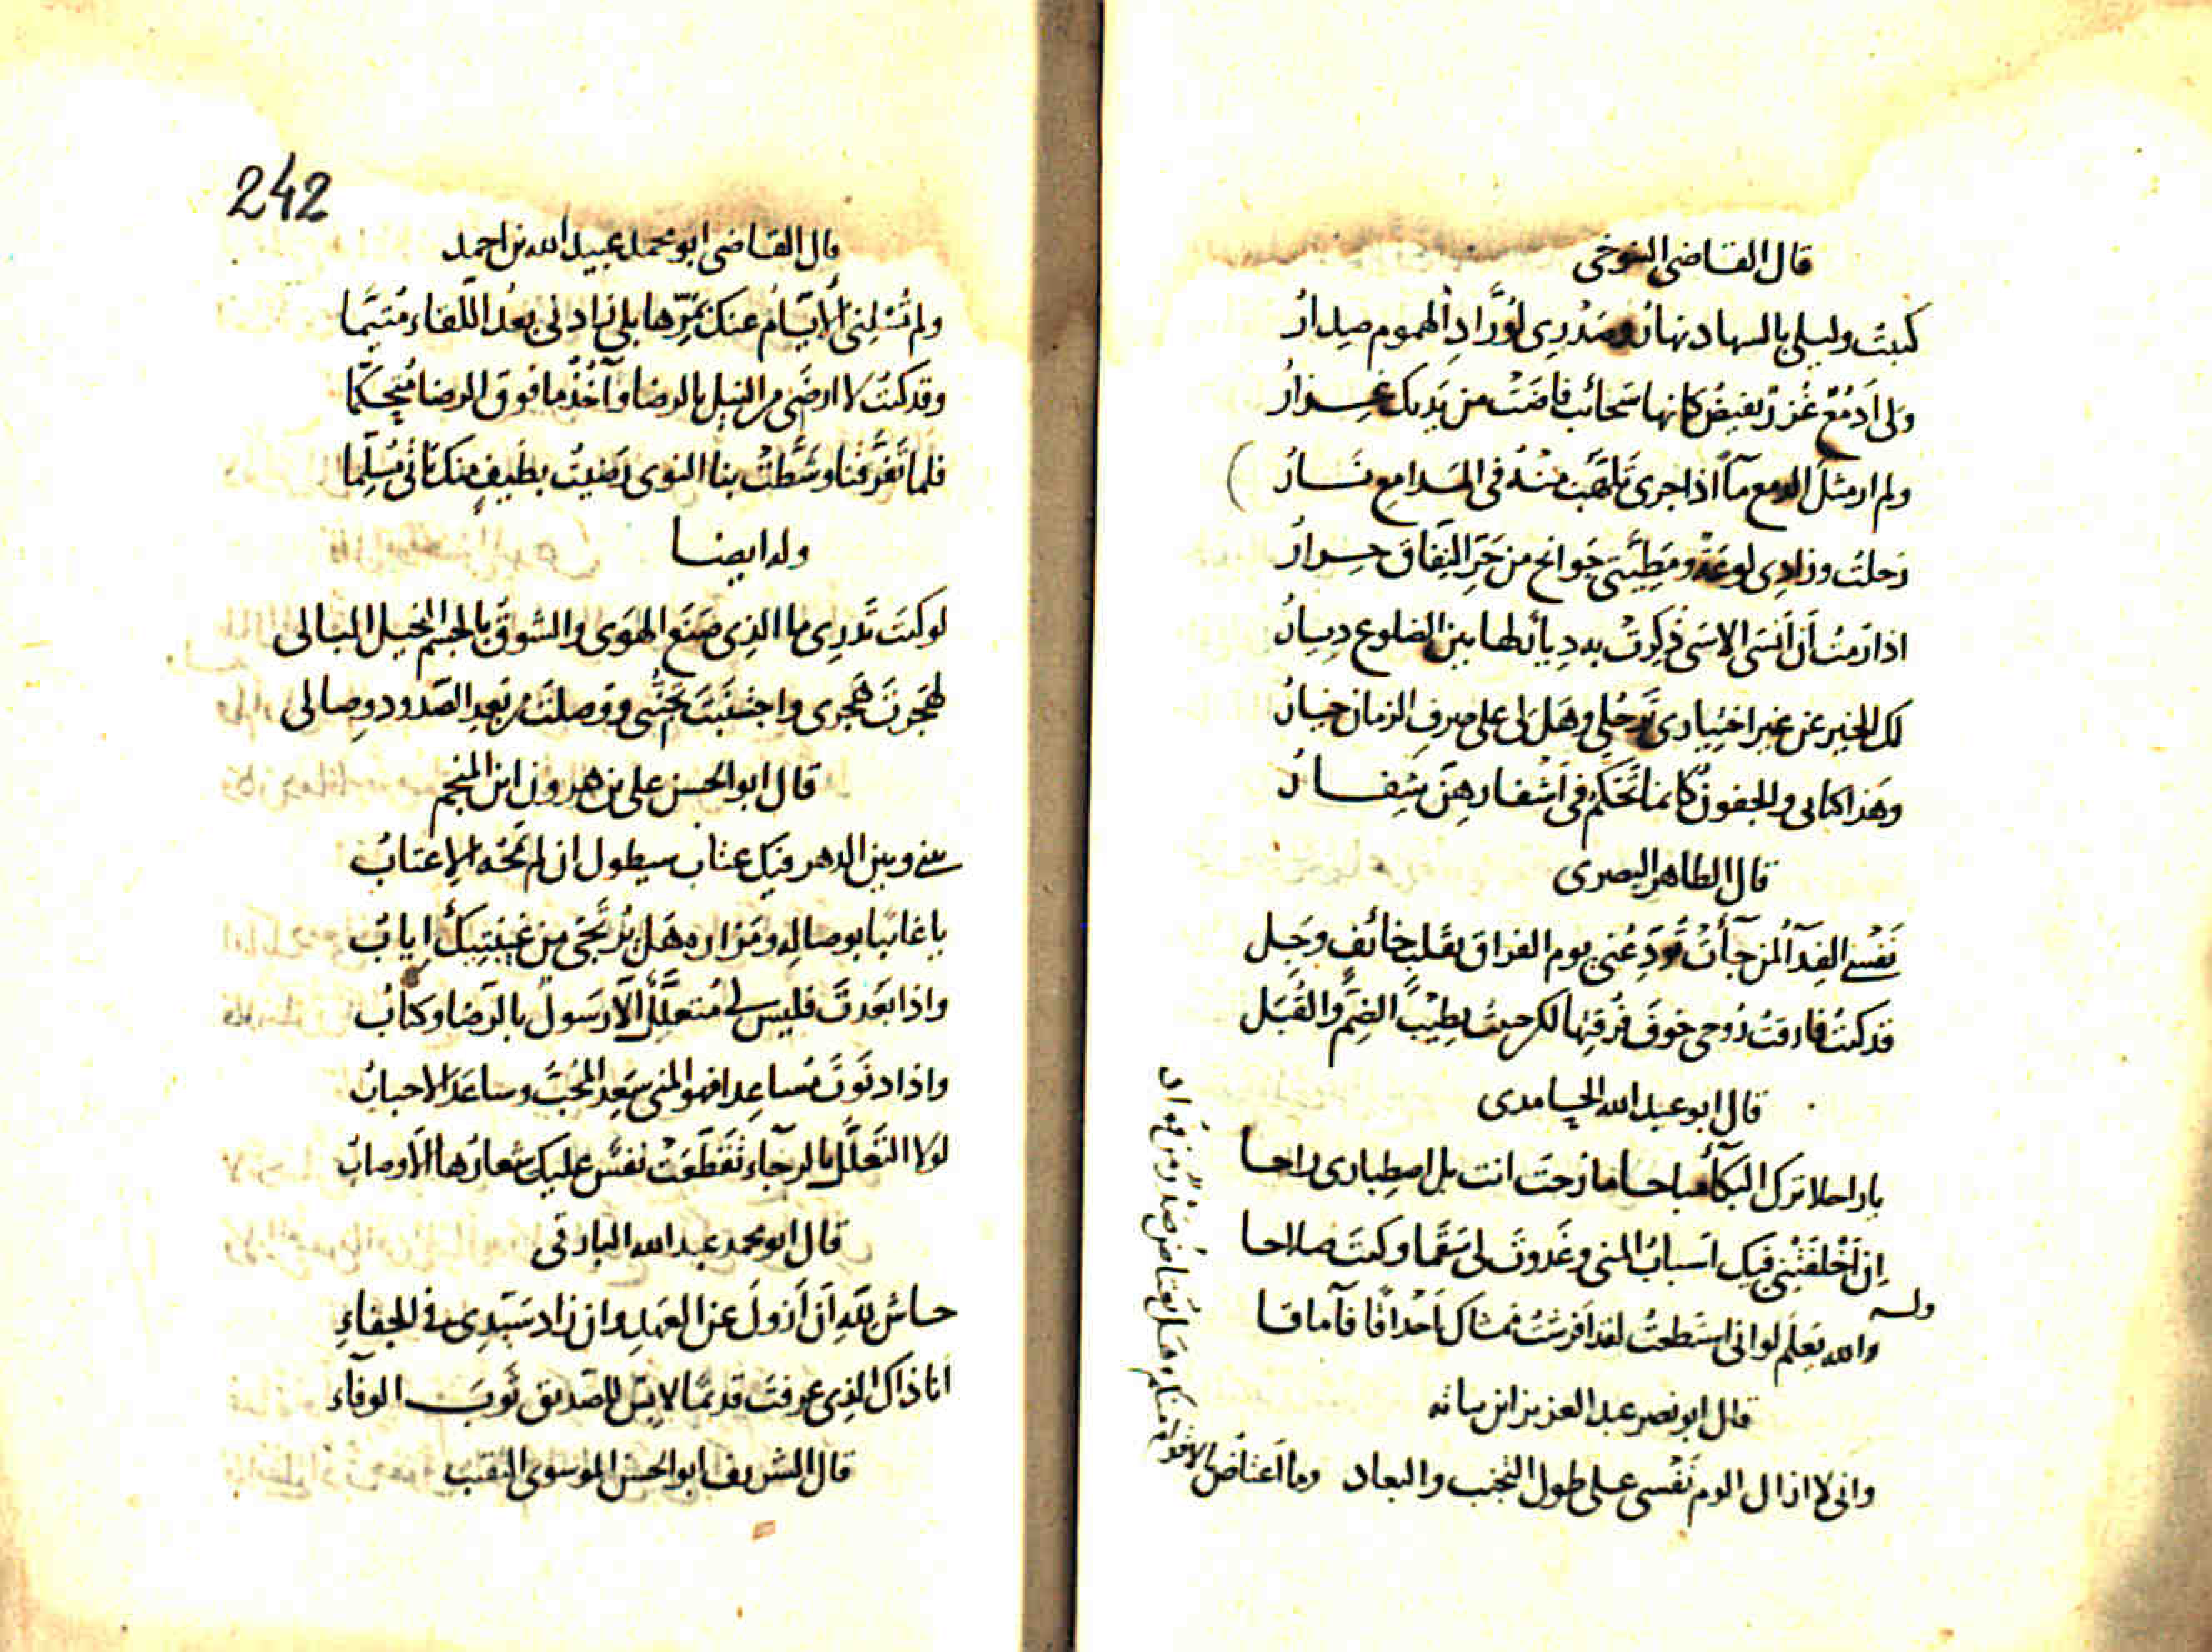 قال القاضي التنوخي
كتبت وليلي بالسهاد نهارُ وصَدْرِي لوُرَّادِ الهموم صدارُ
ولى اَدمُعٌ غُزرٌ تفيضُ كانها سَحائب فاضَتْ من يَديك غِــزارُ
ولم ار مثلَ الدمع مآً اذا جرى تَلهَّبَ منْهُ في المَدامِع نَــارُ
رَحلتُ وزادِى لوعَةٌ ومَطِيَّتى جَوانح من حَرِّ الفِراق حِــرارُ
اذا رُمتُ اَن اَنسَى الاسَى ذكِرَتْ به دِيارٌ لها بين الضلوع دِيــارُ
لك الخير عن غير اختيارى تَرحُلِي وهَلْ لى على صرفِ الزمان خيارُ
وهَذا كتابى والجفونُ كانما تَحَكم فى اَشْفارهِنّ شِفــارُ
قال الطاهر البصرى
نَفْسى الفِدآُ لمن جآءَتْ تُوَدِّعُنى يوم الفراق بقلب خائف وجَل
قد كنتُ فارقتُ رُوحى خوفَ فُرقتِها لكن حييتُ بطِيْبِ الضّمِّ والقُبَل
قال ابو عبد الله الحامدى
يا راحلا ترك البكآء مباحــا ما رُحتَ انت بل اصطِبارى راحــا
اِن اَخْلفَتْنِى فيك اسبابُ المنى وغَدوتَ لى سَقَما وكنتَ صلاحا
ولــه
والله يَعلَم لو انى استَطعتُ لقد اَفرشتُ ممشاك اَحْداقًا فآماقــا
قال ابو نصر عبد العزيز ابن نباته
وانى لا ازال الوم نَفْسى على طول التجنب والبعاد وما اَعتاضُ الاقدام منكم وهَل يُعتاضُ صَدْرٌ من فُؤادى
242
قال القاضى ابو محمد عبيد الله بن احمد
ولم تُسْلِنى الاَيّامُ عنك بمَرِّها بلى زادنى بُعدُ اللقاء تتيُّما
وقد كنتُ لا ارضَى من النيل بالرضا وآخُذُ ما فوق الرضا مُتحِكّما
فلما تَفَرَّقنا وشَطّتْ بنا النوى رَضيتُ بطَيفٍ منك يأتى مُسَلِّما
وله ايضــا
لو كنتَ تَدرِى ما الذى صَنَع الهوَى والشوقُ بالجسم النحيل البالى
لهَجرتَ هَجرى واجتَنَبتَ تَجَنُّبى ووصلتَ من بَعدِ الصّدود وِصالى
قال ابو الحسن على بن هرون ابن المنجم
بينى وبين الدهر فيك عتاب سيطول ان لم تَمحُه الاِعتابُ
يا غائبًا بوصالِه ومَزاره هَل يُرتَجَى من غَيبتِيكَ اِيابُ
واذا بَعَدتَ فليس لى مُتعلَّلٌ اِلّا رَسولٌ بالرّضا وكتابُ
واذا دنَوتَ مُساعِدا فهو المنى سَعِد المُحبّ وساعَدَ الاحبابُ
لولا التّعلّل بالرجآء تَقطّعَتْ نفسٌ عليك شعارُها الأوصابُ
قال ابو محمد عبد الله البارقى
حــاشَ للهِ اَن اَزولَ عن العَهدِ وان زاد سَيّدِى فى الجفاءِ
انا ذاك الذى عرفتَ قديمًا لابِسٌ للصّديق ثَوبَ الوفآء
قال الشريف ابو الحسن الموسوى النقيب